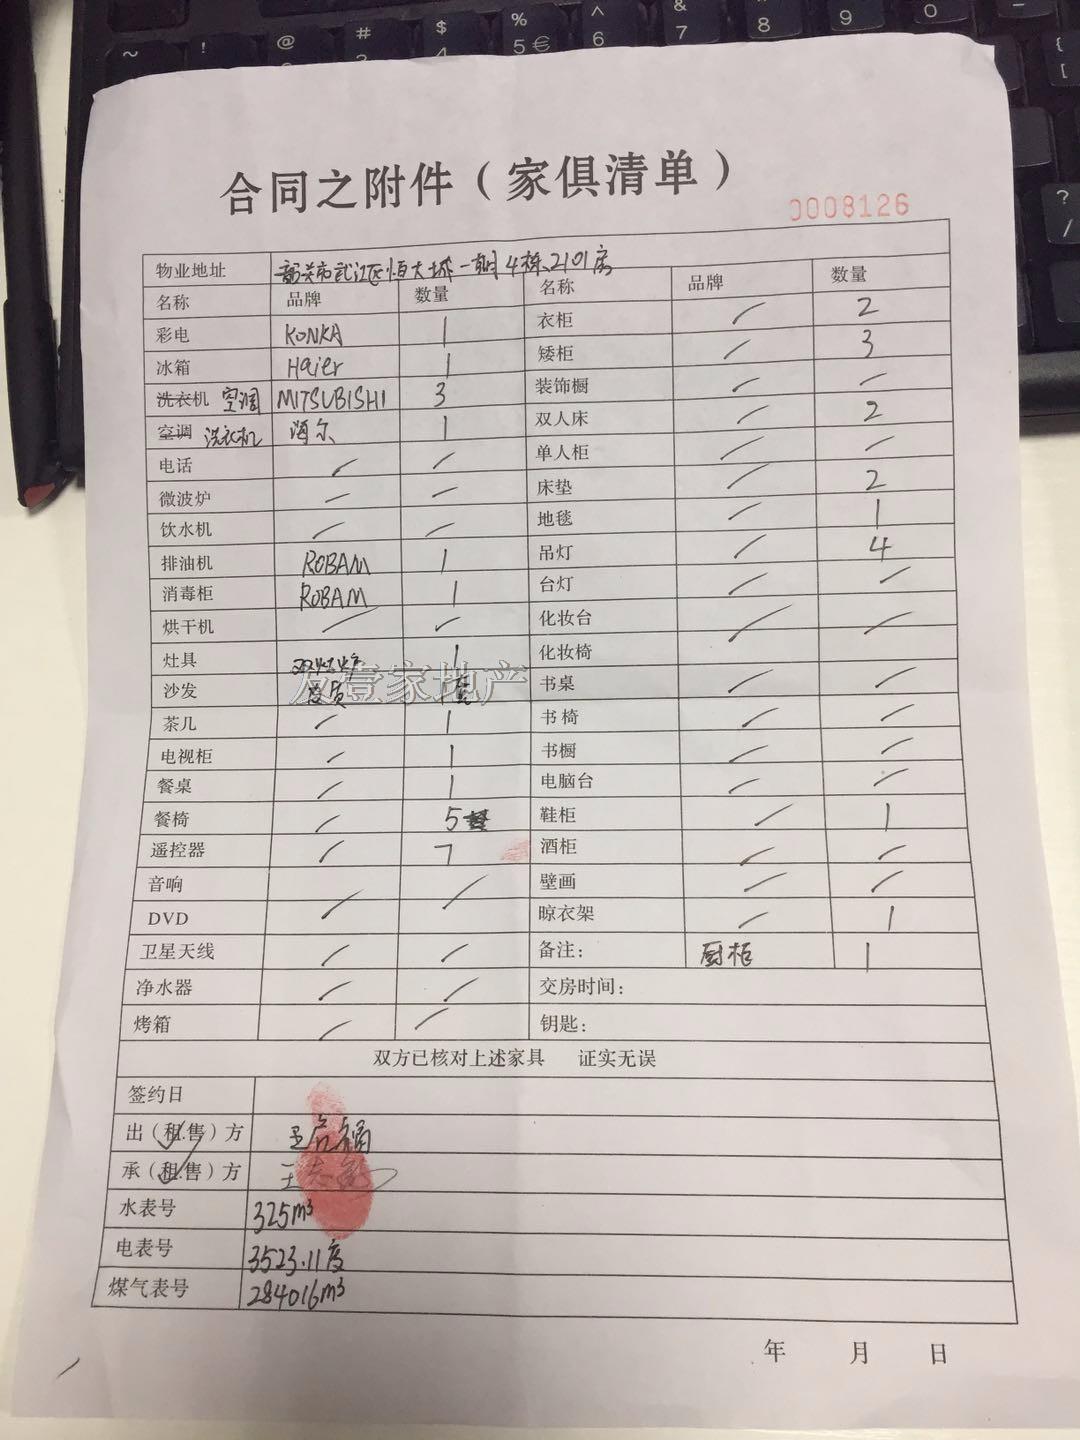 合同之附件（家俱清单）
0008126
物业地址 韶关市武江区恒大城一期4栋2101房
名称 品牌 数量 名称 品牌 数量
彩电 KONKA 1 衣柜 / 2
冰箱 Haier 1 矮柜 / 3
洗衣机 空调 MITSUBISHI 3 装饰橱 / /
空调 洗衣机 海尔 1 双人床 / 2
电话 / / 单人柜 / /
微波炉 / / 床垫 / 2
饮水机 / / 地毯 / 1
排油机 ROBAM 1 吊灯 / 4
消毒柜 ROBAM 1 台灯 / /
烘干机 / / 化妆台 / /
灶具 1 化妆椅
沙发 皮质 1套 书桌 / /
茶几 / 1 书椅 / /
电视柜 / 1 书橱 / /
餐桌 / 1 电脑台 / /
餐椅 / 5 鞋柜 / 1
遥控器 / 7 酒柜 / /
音响 / / 壁画 / /
DVD 晾衣架 / 1
卫星天线 / / 备注： 厨柜 1
净水器 / / 交房时间：
烤箱 / / 钥匙：
双方已核对上述家具 证实无误
签约日
出（租.售）方
承（租.售）方
水表号 325m³
电表号 3523.11度
煤气表号 284016m³
年 月 日
壹家地产